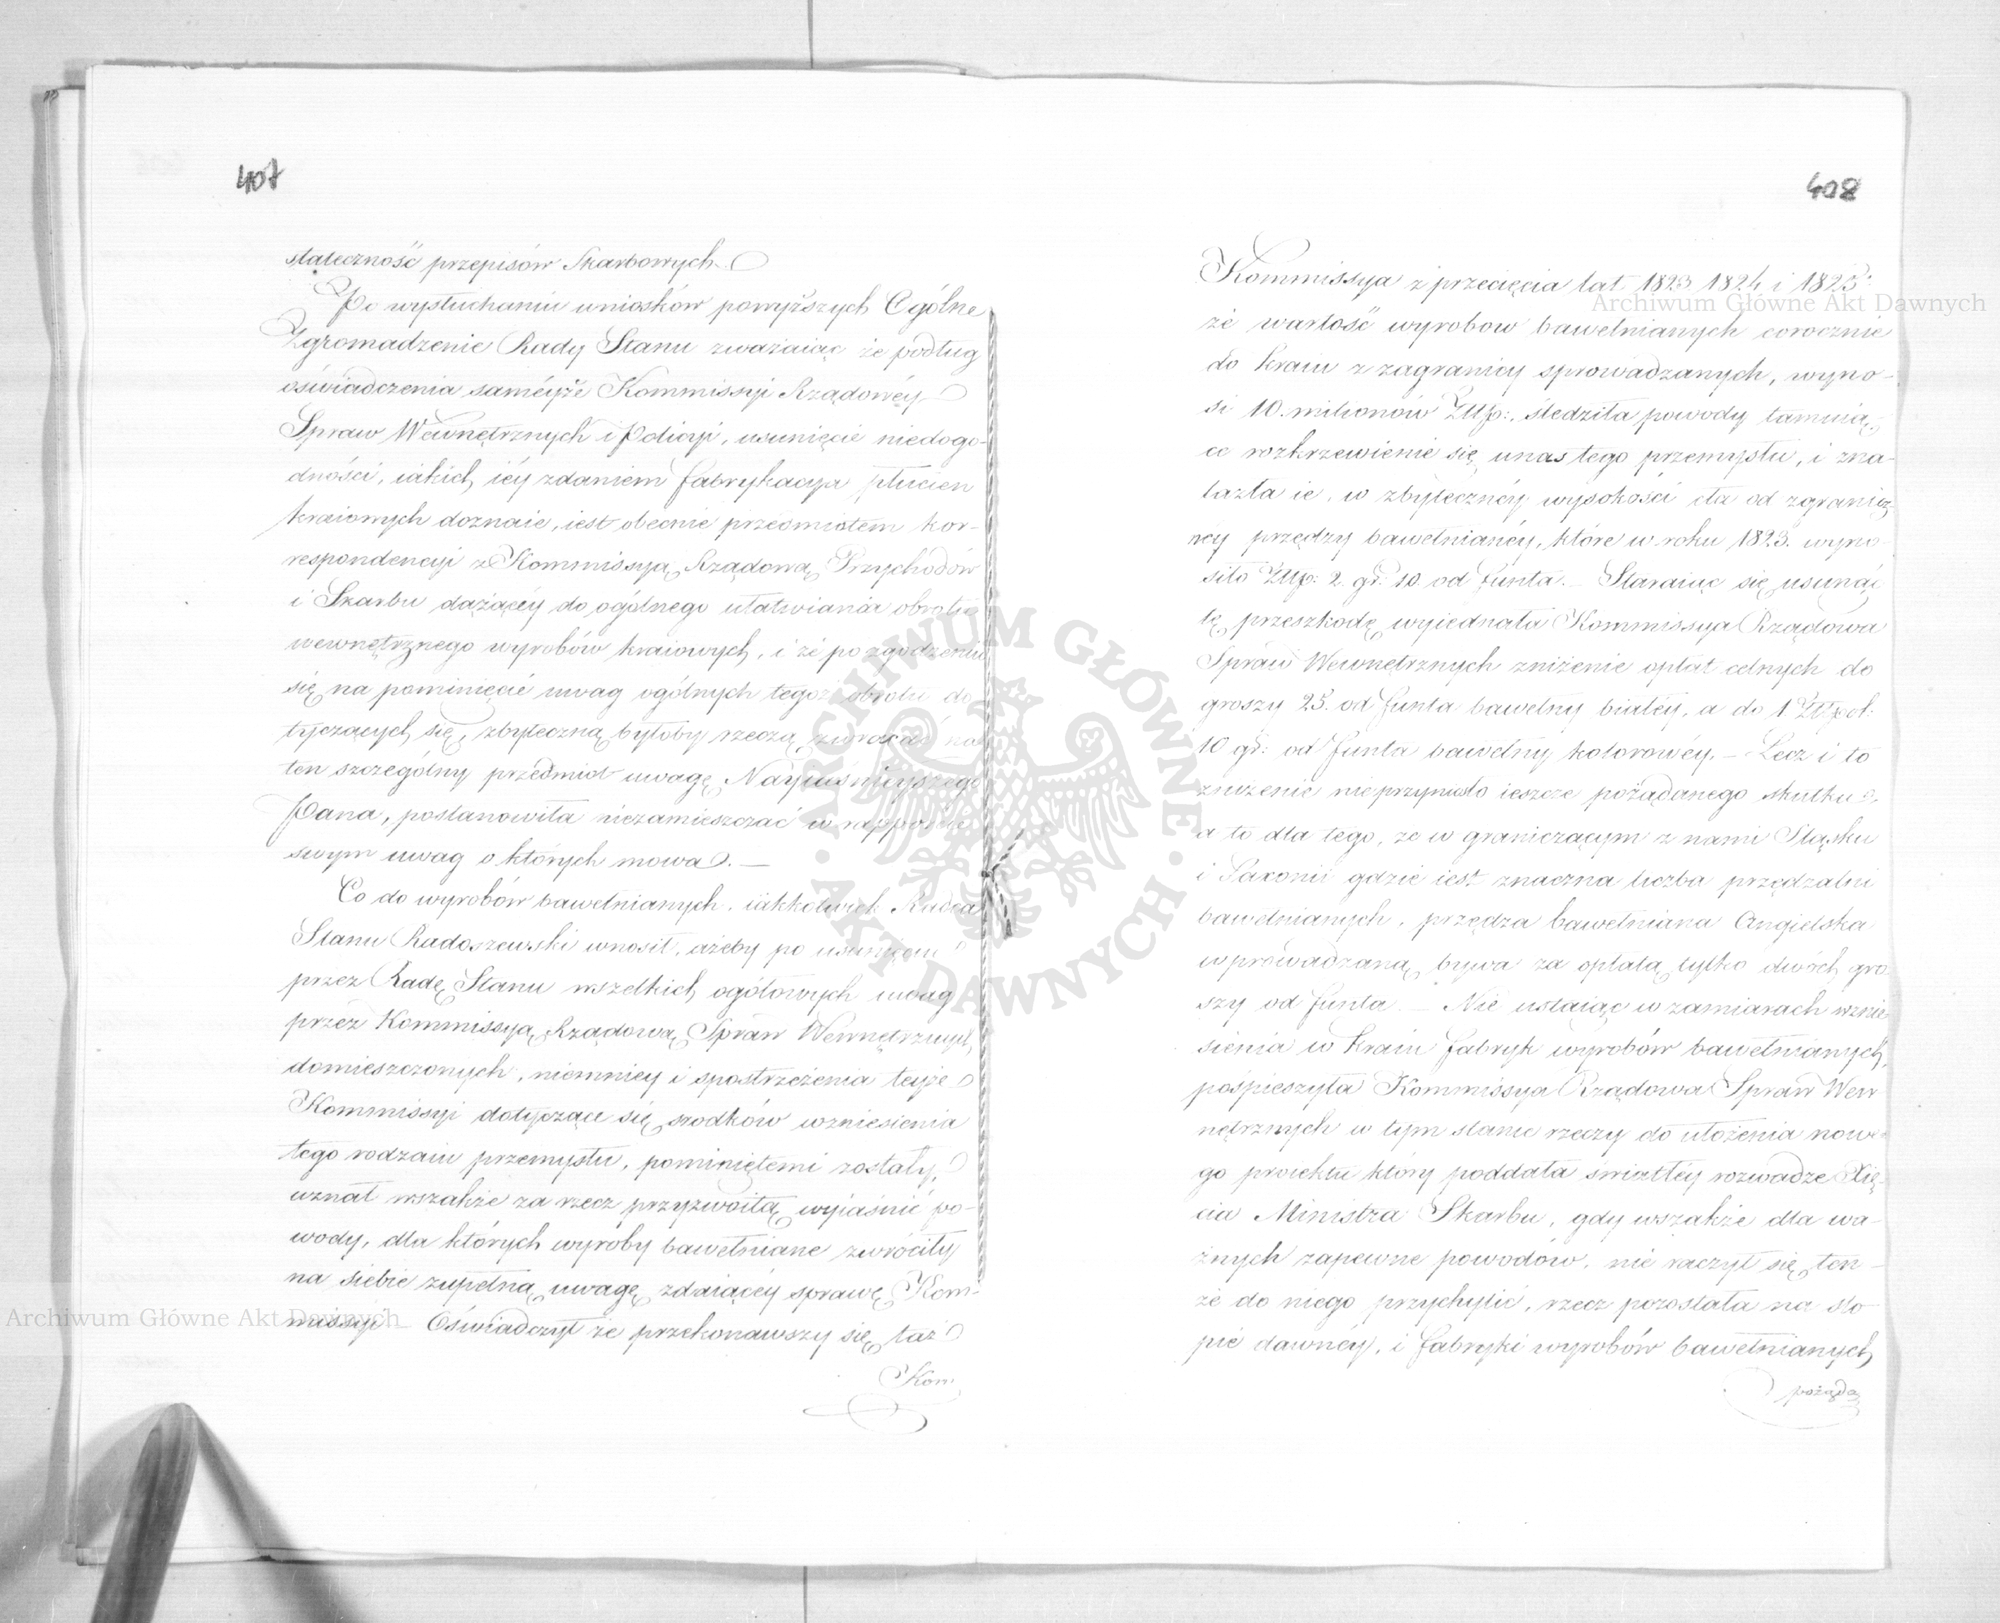 407
stateczność przepisów Skarbowych.
Po wysłuchaniu wniosków powyższych Ogólne
Zgromadzenie Rady Stanu zważaiąc że podług
oświadczenia saméyże Kommissyi Rządowéy
Spraw Wewnętrznych i Policyi, usunięcie niedogo-
dności, iakich iéy zdaniem fabrykacya płucien
kraiowych doznaie, iest obecnie przedmiotem kor-
respondencyi z Kommissyą Rządową Przychodów
i Skarbu dążącéy do ogólnego ułatwiania obrotu
wewnętrznego wyrobów kraiowych, i że po zgodzeniu
się na pominięcie uwag ogólnych tegoż obrotu do
tyczących się, zbyteczną byłoby rzeczą zwracać na
ten szczególny przedmiot uwagę Nayiaśnieyszego
Pana, postanowiła niezamieszczać w rapporcie
swym uwag o których mowa. —
Co do wyrobów bawełnianych, iakkolwiek Radca
Stanu Radoszewski wnosił, ażeby po usunięciu
przez Radę Stanu wszelkich ogółowych uwag
przez Kommissyą Rządową Spraw Wewnętrznych
domieszczonych, niemniey i spostrzeżenia teyże
Kommissyi dotyczące się srodków wzniesienia
tego rodzaiu przemysłu, pominiętemi zostały,
uznał wszakże za rzecz przyzwoitą wyiaśnić po-
wody, dla których wyroby bawełniane zwróciły
na siebie zupełną uwagę zdaiącéy sprawę Kom-
missyi — Oświadczył że przekonawszy się taż
Kom
408
Kommissya z przecięcia lat 1823 1824 i 1825
że wartość wyrobow bawełnianych corocznie
do kraiu z zagranicy sprowadzanych, wyno-
si 10. milionów Złłp:, śledziła powody tamuią-
ce rozkrzewienie się unas tego przemysłu, i zna-
lazła ie, w zbyteczney wysokości cła od zgranicz-
néy przędzy bawełnianéy, które w roku 1823. wyno
siło Złłp: 2 gr. 10. od funta. — Staraiąc się usunąć
tę przeszkodę wyiednała Kommissya Rządowa
Spraw Wewnętrznych zniżenie opłat celnych do
groszy 25. od funta bawełny białéy, a do 1. Złłpol:
10 gr: od funta bawełny kolorowéy. — Lecz i to
zniżenie nie przyniosło ieszcze pożądanego skutku
a to dla tego, że w graniczącym z nami Sląsku
i Saxonii gdzie iest znaczna liczba przędzalni
bawełnianych, przędza bawełniana Angielska
wprowadzaną bywa za opłatą tylko dwóch gro
szy od funta. — Nie ustaiąc w zamiarach wznie
sienia w kraiu fabryk wyrobów bawełnianych,
pośpieszyła Kommissya Rządowa Spraw Wew
nętrznych w tym stanie rzeczy do ułożenia nowe
go proiektu który poddała światłéy rozwadze Xię-
cia Ministra Skarbu, gdy wszakże dla wa-
żnych zapewne powodów, nie raczył się ten-
że do niego przychylić, rzecz pozostała na sto
pie dawnéy, i fabryki wyrobów bawełnianych
pożąda
Archiwum Główne Akt Dawnych
Archiwum Główne Akt Dawnych
ARCHIWUM GŁÓWNE
AKT DAWNYCH